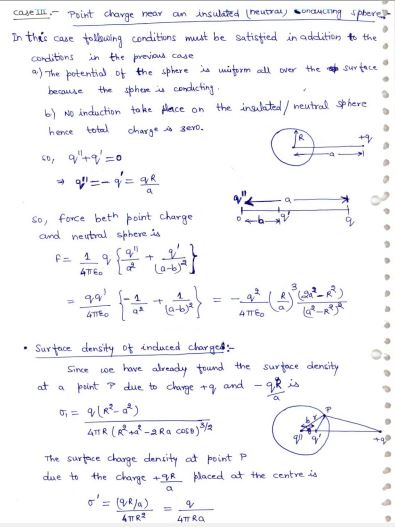 Case III :- Point charge near an insulated (neutral) conducting sphere.
In this case following conditions must be satisfied in addition to the
conditions in the previous case
a.) The potential of the sphere is uniform all over the surface
because the sphere is condicting.
b) No induction take place on the insulated/neutral sphere
hence total charge is zero.
R
+q
a
so, q''+q'=0
⇒ q''=-q' = qR/a
q'' a
0 b q' q
so, force beth point charge
and neutral sphere is
F = 1/4πε₀ q { q''/a² + q'/(a-b)² }
= qq'/4πε₀ { -1/a² + 1/(a-b)² } = - q²/4πε₀ (R/a)³ (2a²-R²)/(a²-R²)²
• Surface density of induced charges:-
Since we have already found the surface density
at a point P due to charge +q and -qR/a is
σ₁ = q(R²-a²) / 4πR (R²+a²-2Ra cosθ)^3/2
P
r
b
θ
q'' q' +q
The surface charge density at point P
due to the charge +qR/a placed at the centre is
σ' = (qR/a)/4πR² = q/4πRa